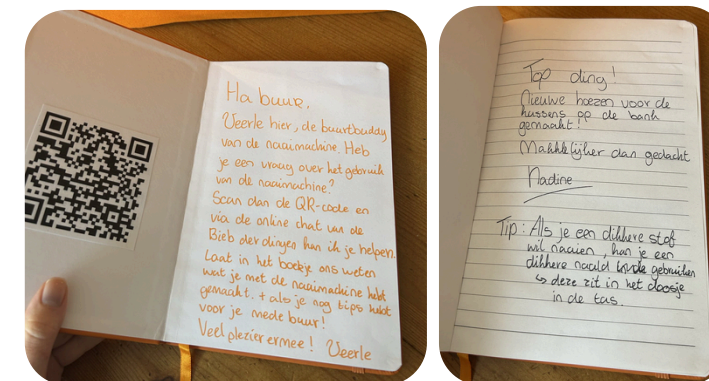 Ha buur,
Veerle hier, de buurtbuddy
van de naaimachine. Heb
je een vraag over het gebruik
van de naaimachine?
Scan dan de QR-code en
via de online chat van de
Bieb der dingen kan ik je helpen.
Laat in het boekje ons weten
wat je met de naaimachine hebt
gemaakt. + als je nog tips hebt
voor je mede buur!
Veel plezier ermee! Veerle
Top ding!
Nieuwe hoezen voor de
kussens op de bank
gemaakt!
Makkelijker dan gedacht
Nadine
Tip: Als je een dikkere stof
wil naaien, kan je een
dikkere naald gebruiken
↳ deze zit in het doosje
in de tas.